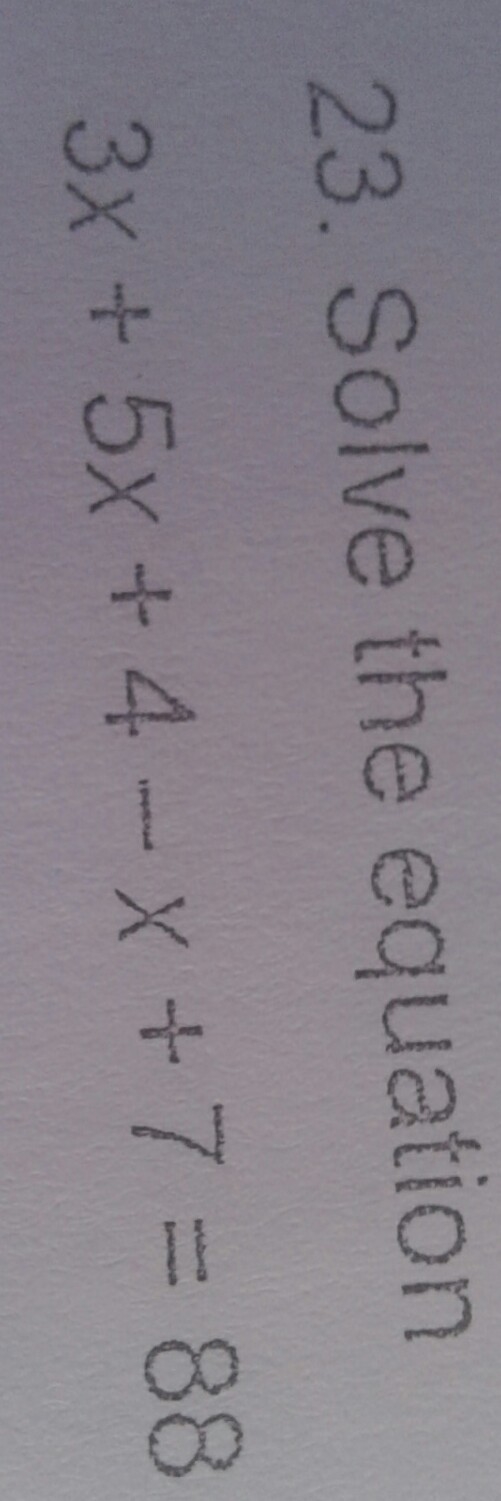 23. Solve the equation
3x + 5x + 4 - x + 7 = 88